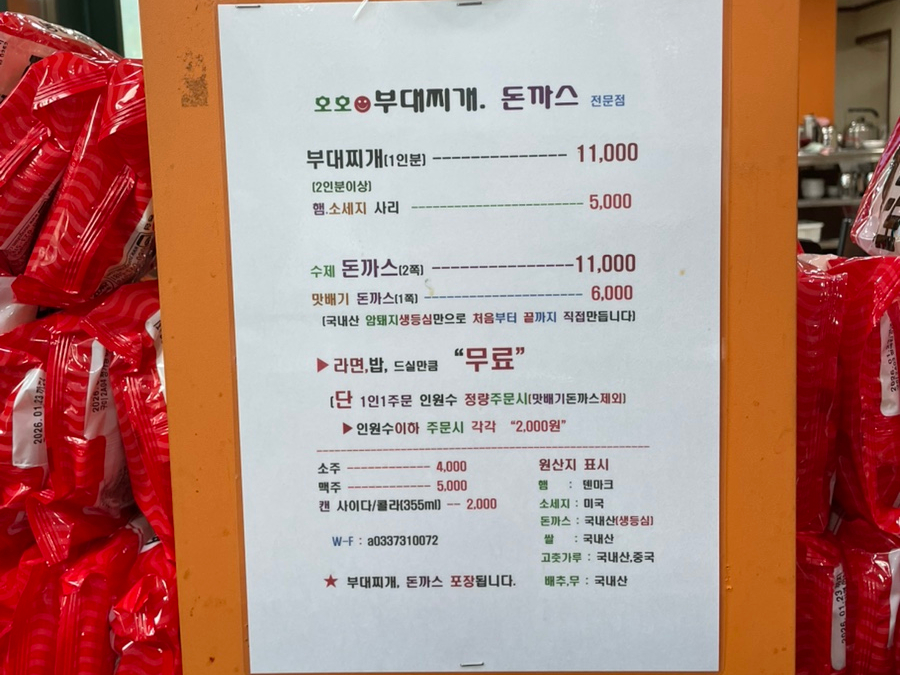 호호 부대찌개. 돈까스 전문점
부대찌개(1인분) -------------- 11,000
(2인분이상)
햄.소세지 사리 ---------------------- 5,000
수제 돈까스(2쪽) ---------------11,000
맛배기 돈까스(1쪽) -------------------- 6,000
(국내산 암돼지생등심만으로 처음부터 끝까지 직접만듭니다)
▶라면,밥, 드실만큼 “무료”
(단 1인1주문 인원수 정량주문시(맛배기돈까스제외)
▶인원수이하 주문시 각각 “2,000원”
소주 ------------ 4,000
맥주 ------------ 5,000
캔 사이다/콜라(355ml) -- 2,000
W-F : a0337310072
★ 부대찌개, 돈까스 포장됩니다.
원산지 표시
햄 : 덴마크
소세지 : 미국
돈까스 : 국내산(생등심)
쌀 : 국내산
고춧가루 : 국내산,중국
배추,무 : 국내산
2026.01.23